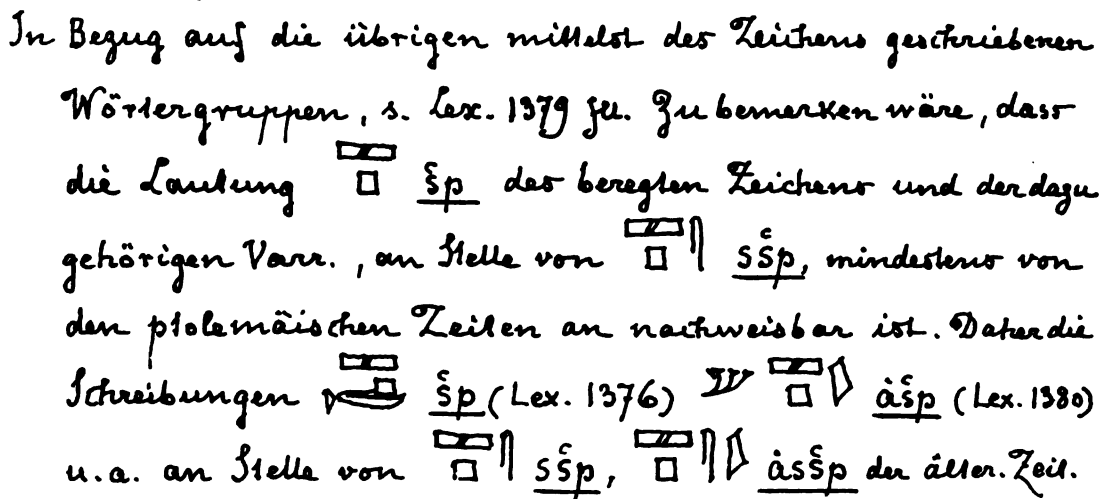 In Bezug auf die übrigen mittelst des Zeichens geschriebenen
Wörtergruppen, s. Lex. 1379 fll. Zu bemerken wäre, dass
die Lautung 𓈙𓊪 šp des beregten Zeichens und der dazu
gehörigen Varr., an Stelle von 𓈙𓊪𓋴 sšp, mindestens von
den ptolemäischen Zeiten an nachweisbar ist. Daher die
Schreibungen šp (Lex. 1376) àšp (Lex. 1380)
u.a. an Stelle von 𓈙𓊪𓋴 sšp, àsšp der älter. Zeit.